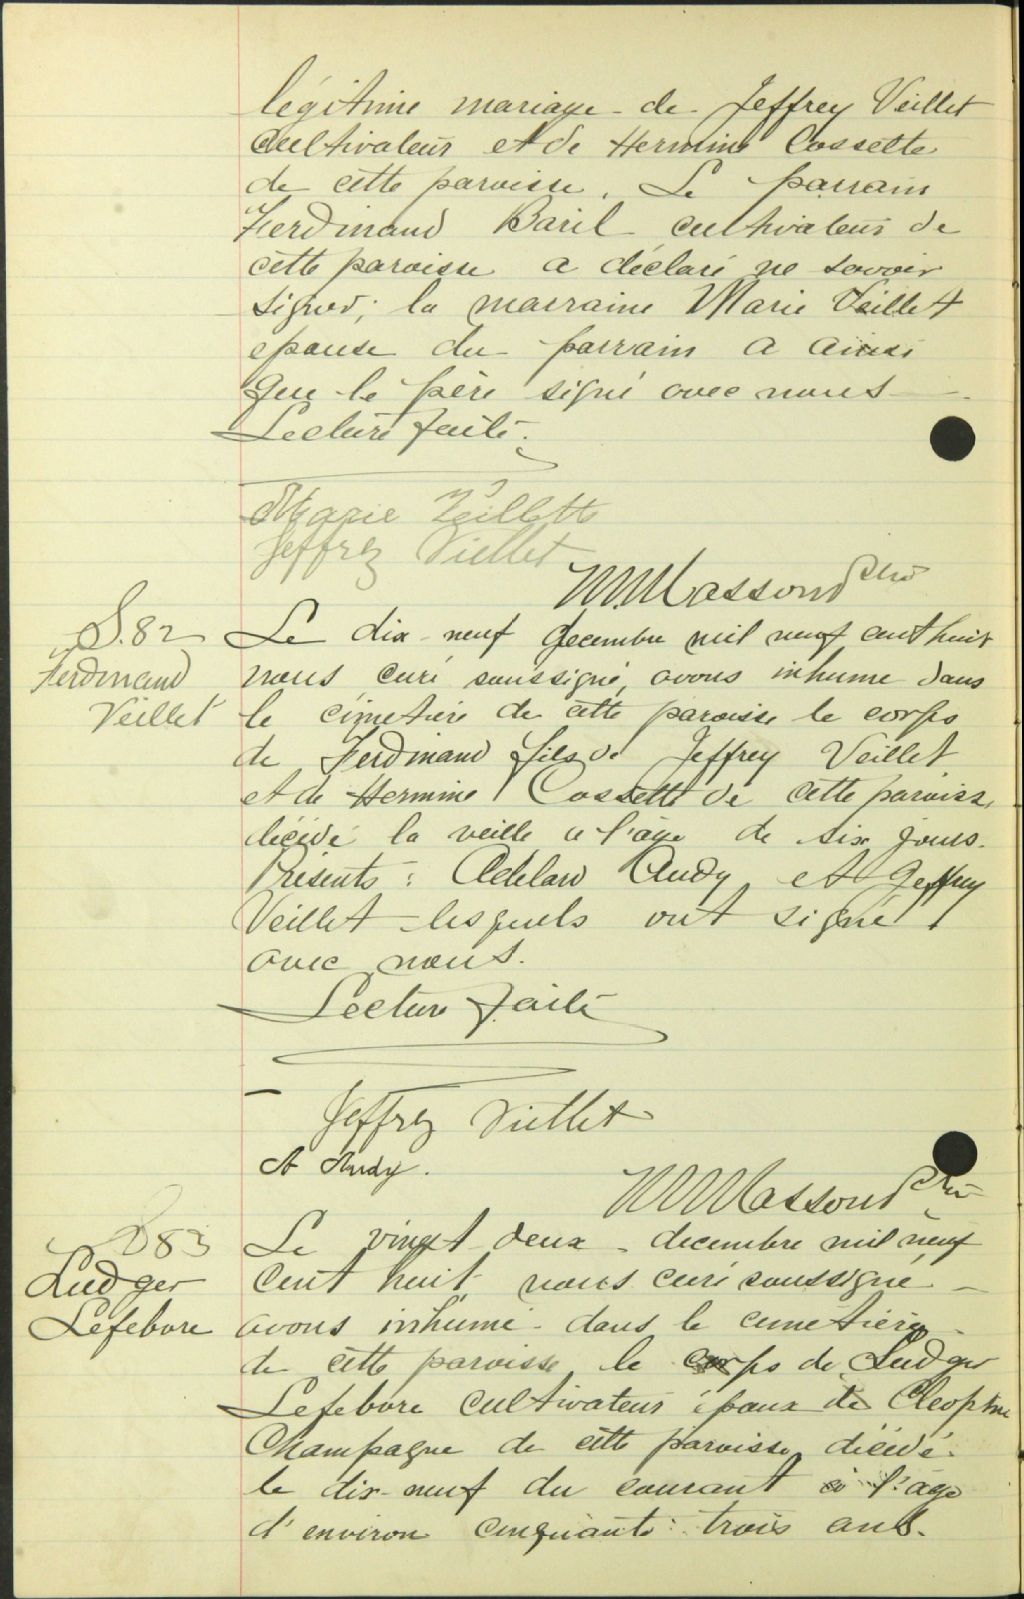 légitime mariage de Jeffrey Veillet
cultivateur et de Hermine Cossette
de cette paroisse. Le parrain
Ferdinand Baril cultivateur de
cette paroisse a déclaré ne savoir
signer; la marraine Marie Veillet
epouse du parrain a ainsi
que le père signé avec nous
Lecture faite.
Marie Veillette
Jeffrey Viellet
M. Masson Ptre
S. 82
Ferdinand
Veillet
Le dix-neuf decembre mil neuf cent huit
nous curé soussigné, avons inhumé dans
le cimetière de cette paroisse le corps
de Ferdinand fils de Jeffrey Veillet
et de Hermine Cossette de cette paroisse
décédé la veille a l'âge de six jours.
Présents: Adélard Audy et Jeffrey
Veillet lesquels ont signé
avec nous.
Lecture faite
Jeffrey Viellet
A Audy.
M Masson Ptre
S 83
Ludger
Lefebvre
Le vingt deux decembre mil neuf
cent huit nous curé soussigné
avons inhumé dans le cimetière
de cette paroisse le corps de Ludger
Lefebvre cultivateur époux de Cleophee
Champagne de cette paroisse, décédé
le dix-neuf du courant a l'âge
d'environ cinquante-trois ans.